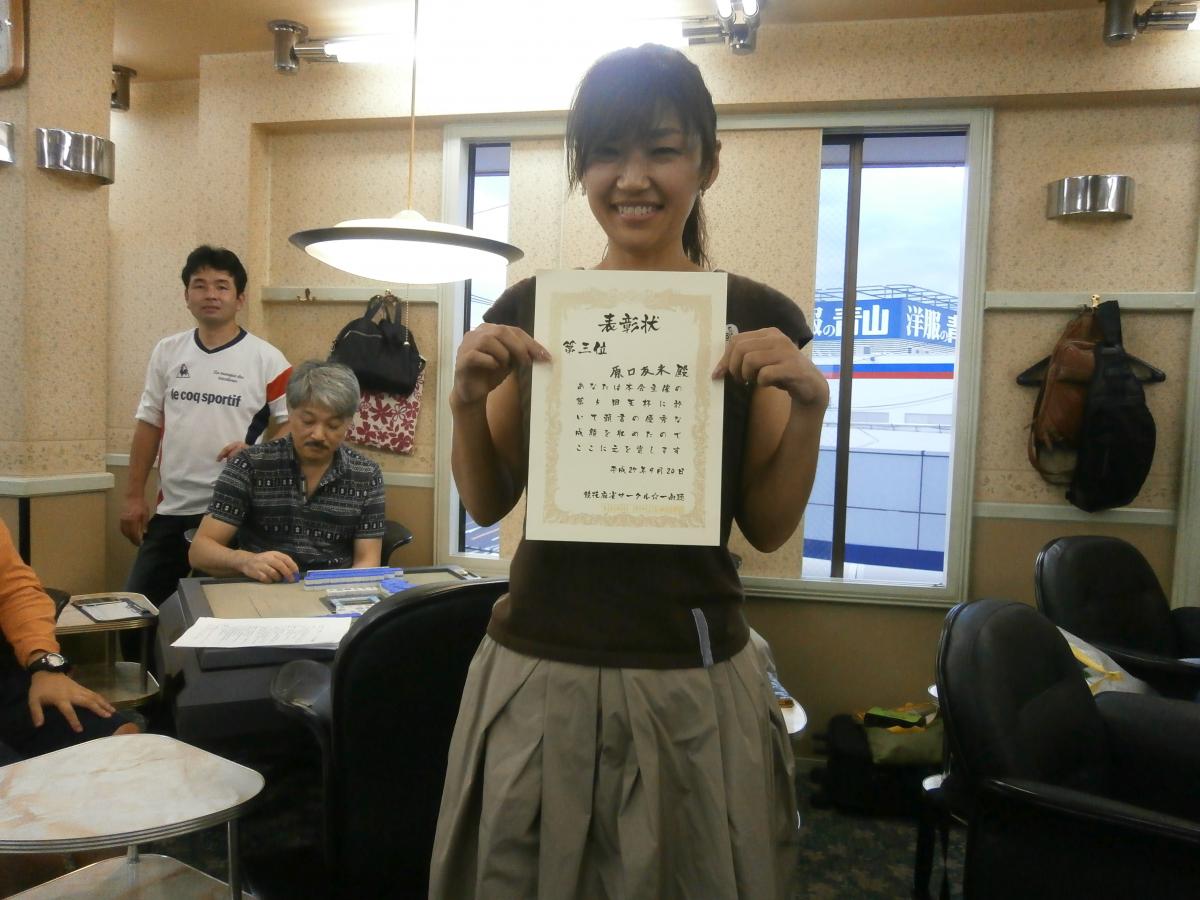 表彰状
第三位
原口友未 殿
あなたは本会主催の
第5回王杯に於
いて頭書の優秀な
成績を収めたので
ここに之を賞します
平成27年9月20日
競技麻雀サークル☆一向聴
le coq sportif
洋服の青山
洋服の